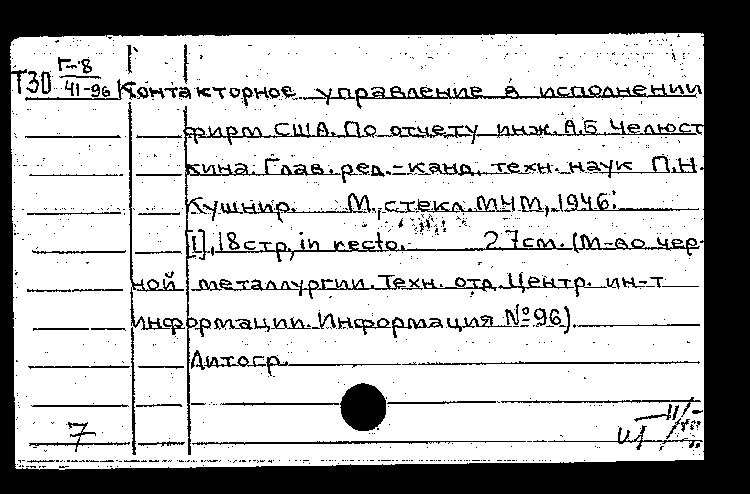 Т30 Г-8
41-96 Контакторное управление в исполнении
фирм США. По отчету инж. А.Б Челюст
кина. Глав. ред.-канд. техн. наук П.Н.
Кушнир. М., стекл. МЧМ, 1946.
[I], 18 стр, in recto. 27см. (М-во чер-
ной металлургии. Техн. отд. Центр. ин-т
информации. Информация №96)
Литогр.
7